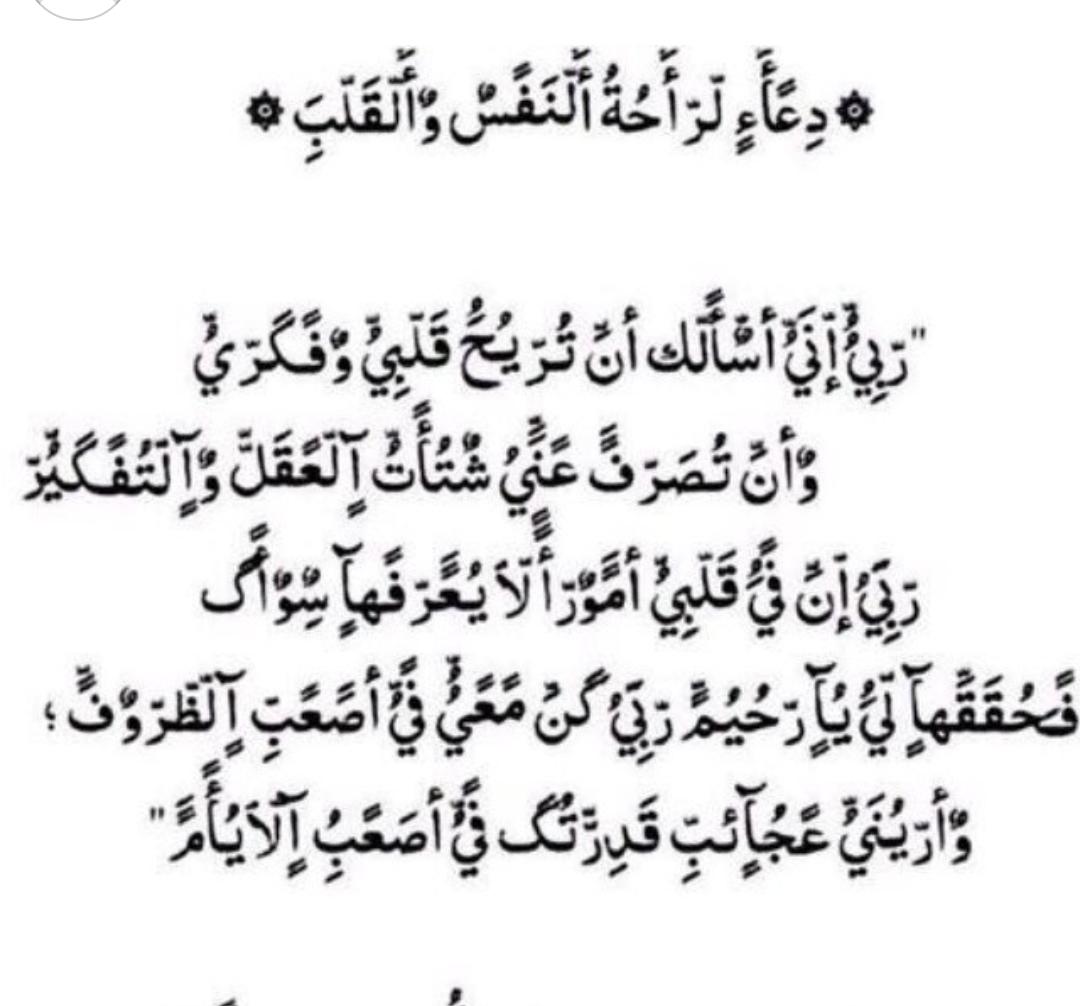 ۞ دِعًأَءٍ لّرّأَحُةُ أَلّنَفًسٌ وٌأَلّقَلّبَِ ۞
"رَبِيُّ إنَيَّ أسٌأَلَّك أنَّ تُرّيُحً قَلّبِيُّ وٌفًكَرّيُّ
وٌأنَّ تُصَرّفً عَنٌيُّ شٌتُأَتُ آلّعًقَلَّ وٌآلّتُفًكَيُرّ
رَبِيَُ إنَّ فَيُّ قَلّبِيُّ أمًوٌرّأَ لّاَ يُعًرّفًهآ سِوٌأَك
فًحُقَقًهآ لّيُّ يُآرّحُيُمً رّبِيَُ كَنٌ مًعًيُّ فَيُّ أصَعًبِّ آلّظّرّوٌفً ؛
وٌأرّيُنَيُّ عًجُآئبِّ قَدِرّتُك فَيُّ أصَعًبُِ آلّاَيُأَمً"